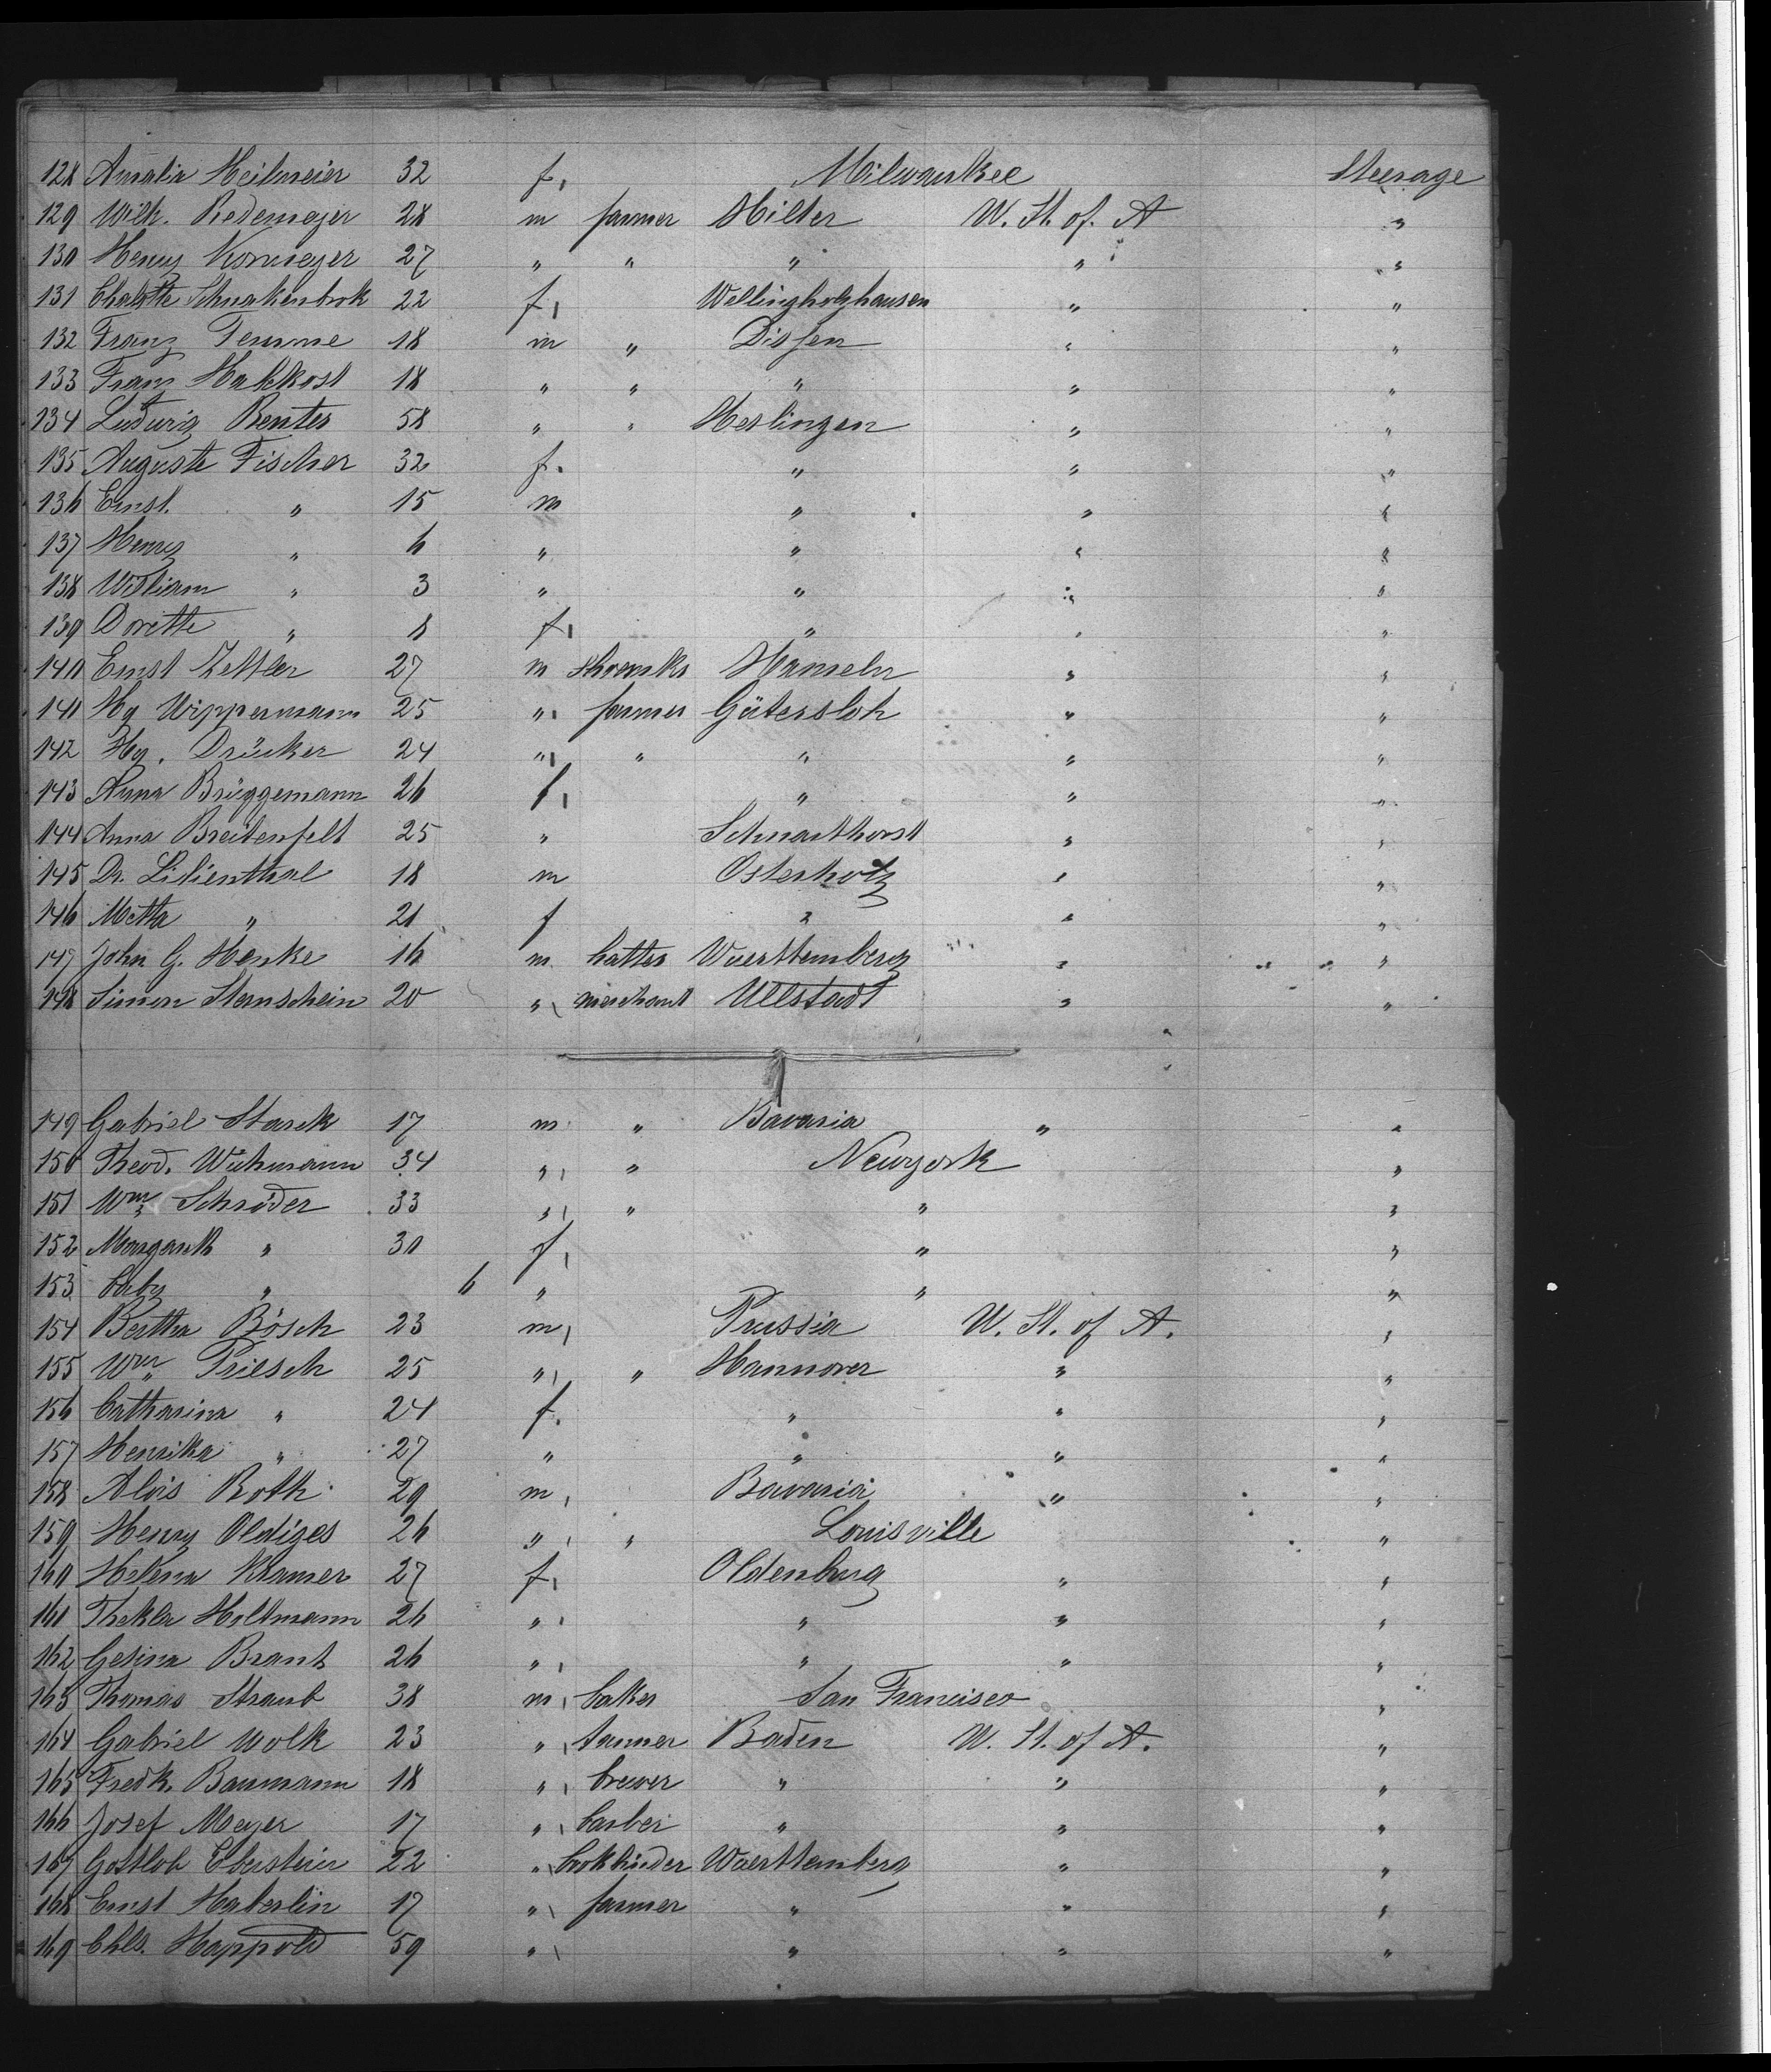 128 Amalia Heilmeier 32 f. Milwaukee Steerage
129 Wilh. Redemeyer 28 m farmer Hilter U. St. of. A "
130 Henry Kormeyer 27 " " " " "
131 Chalotte Schnakenbrok 22 f. Wellingholzhausen " "
132 Franz Temme 18 m " Dissen " "
133 Franz Halkost 18 " " " " "
134 Ludwig Renter 58 " " Heslingen " "
135 Auguste Fischer 32 f. " " "
136 Ernst. " 15 m " " "
137 Henry " 6 " " " "
138 William " 3 " " " "
139 Dorette " 8 f. " " "
140 Ernst Zeltler 27 m Hameln " "
141 Hy Wippermann 25 " farmer Gütersloh " "
142 Hy. Drücker 24 " " " " "
143 Anna Brüggemann 26 f. " " "
144 Anna Breitenfelt 25 " " "
145 Dr. Lilienthal 18 m Osterholz " "
146 Metta " 21 f " " "
147 John G. Henke 16 m. hatter Wuerttemberg " "
148 Simon Sternschein 20 " merchant Ullstadt " "
149 Gabriel Starck 17 m " Bavaria " "
150 Theod. Wichmann 34 " " Newyork "
151 Wm Schröder 33 " " " "
152 Margareth " 30 f. " "
153 baby " 6 " " "
154 Bertha Bösch 23 m Prussia U. St. of A. "
155 Wm Priesch 25 " " Hannover " "
156 Catharina " 24 f. " " "
157 Henrika " 27 " " " "
158 Alois Roth 29 m. Bavaria " "
159 Henry Oldiges 26 " " Louisville "
160 Helena Kramer 27 f. Oldenburg " "
161 Thekla Holtmann 26 " " " "
162 Gesina Brant 26 " " " "
163 Thomas Straub 38 m. baker San Francisco "
164 Gabriel Wolk 23 " tanner Baden U. St. of A. "
165 Fredk. Baumann 18 " brewer " " "
166 Josef Meyer 17 " barber " " "
167 Gottlob Eberstein 22 " bookbinder Wuerttemberg " "
168 Ernst Haberlin 17 " farmer " " "
169 Chls. Happold 59 " " " "